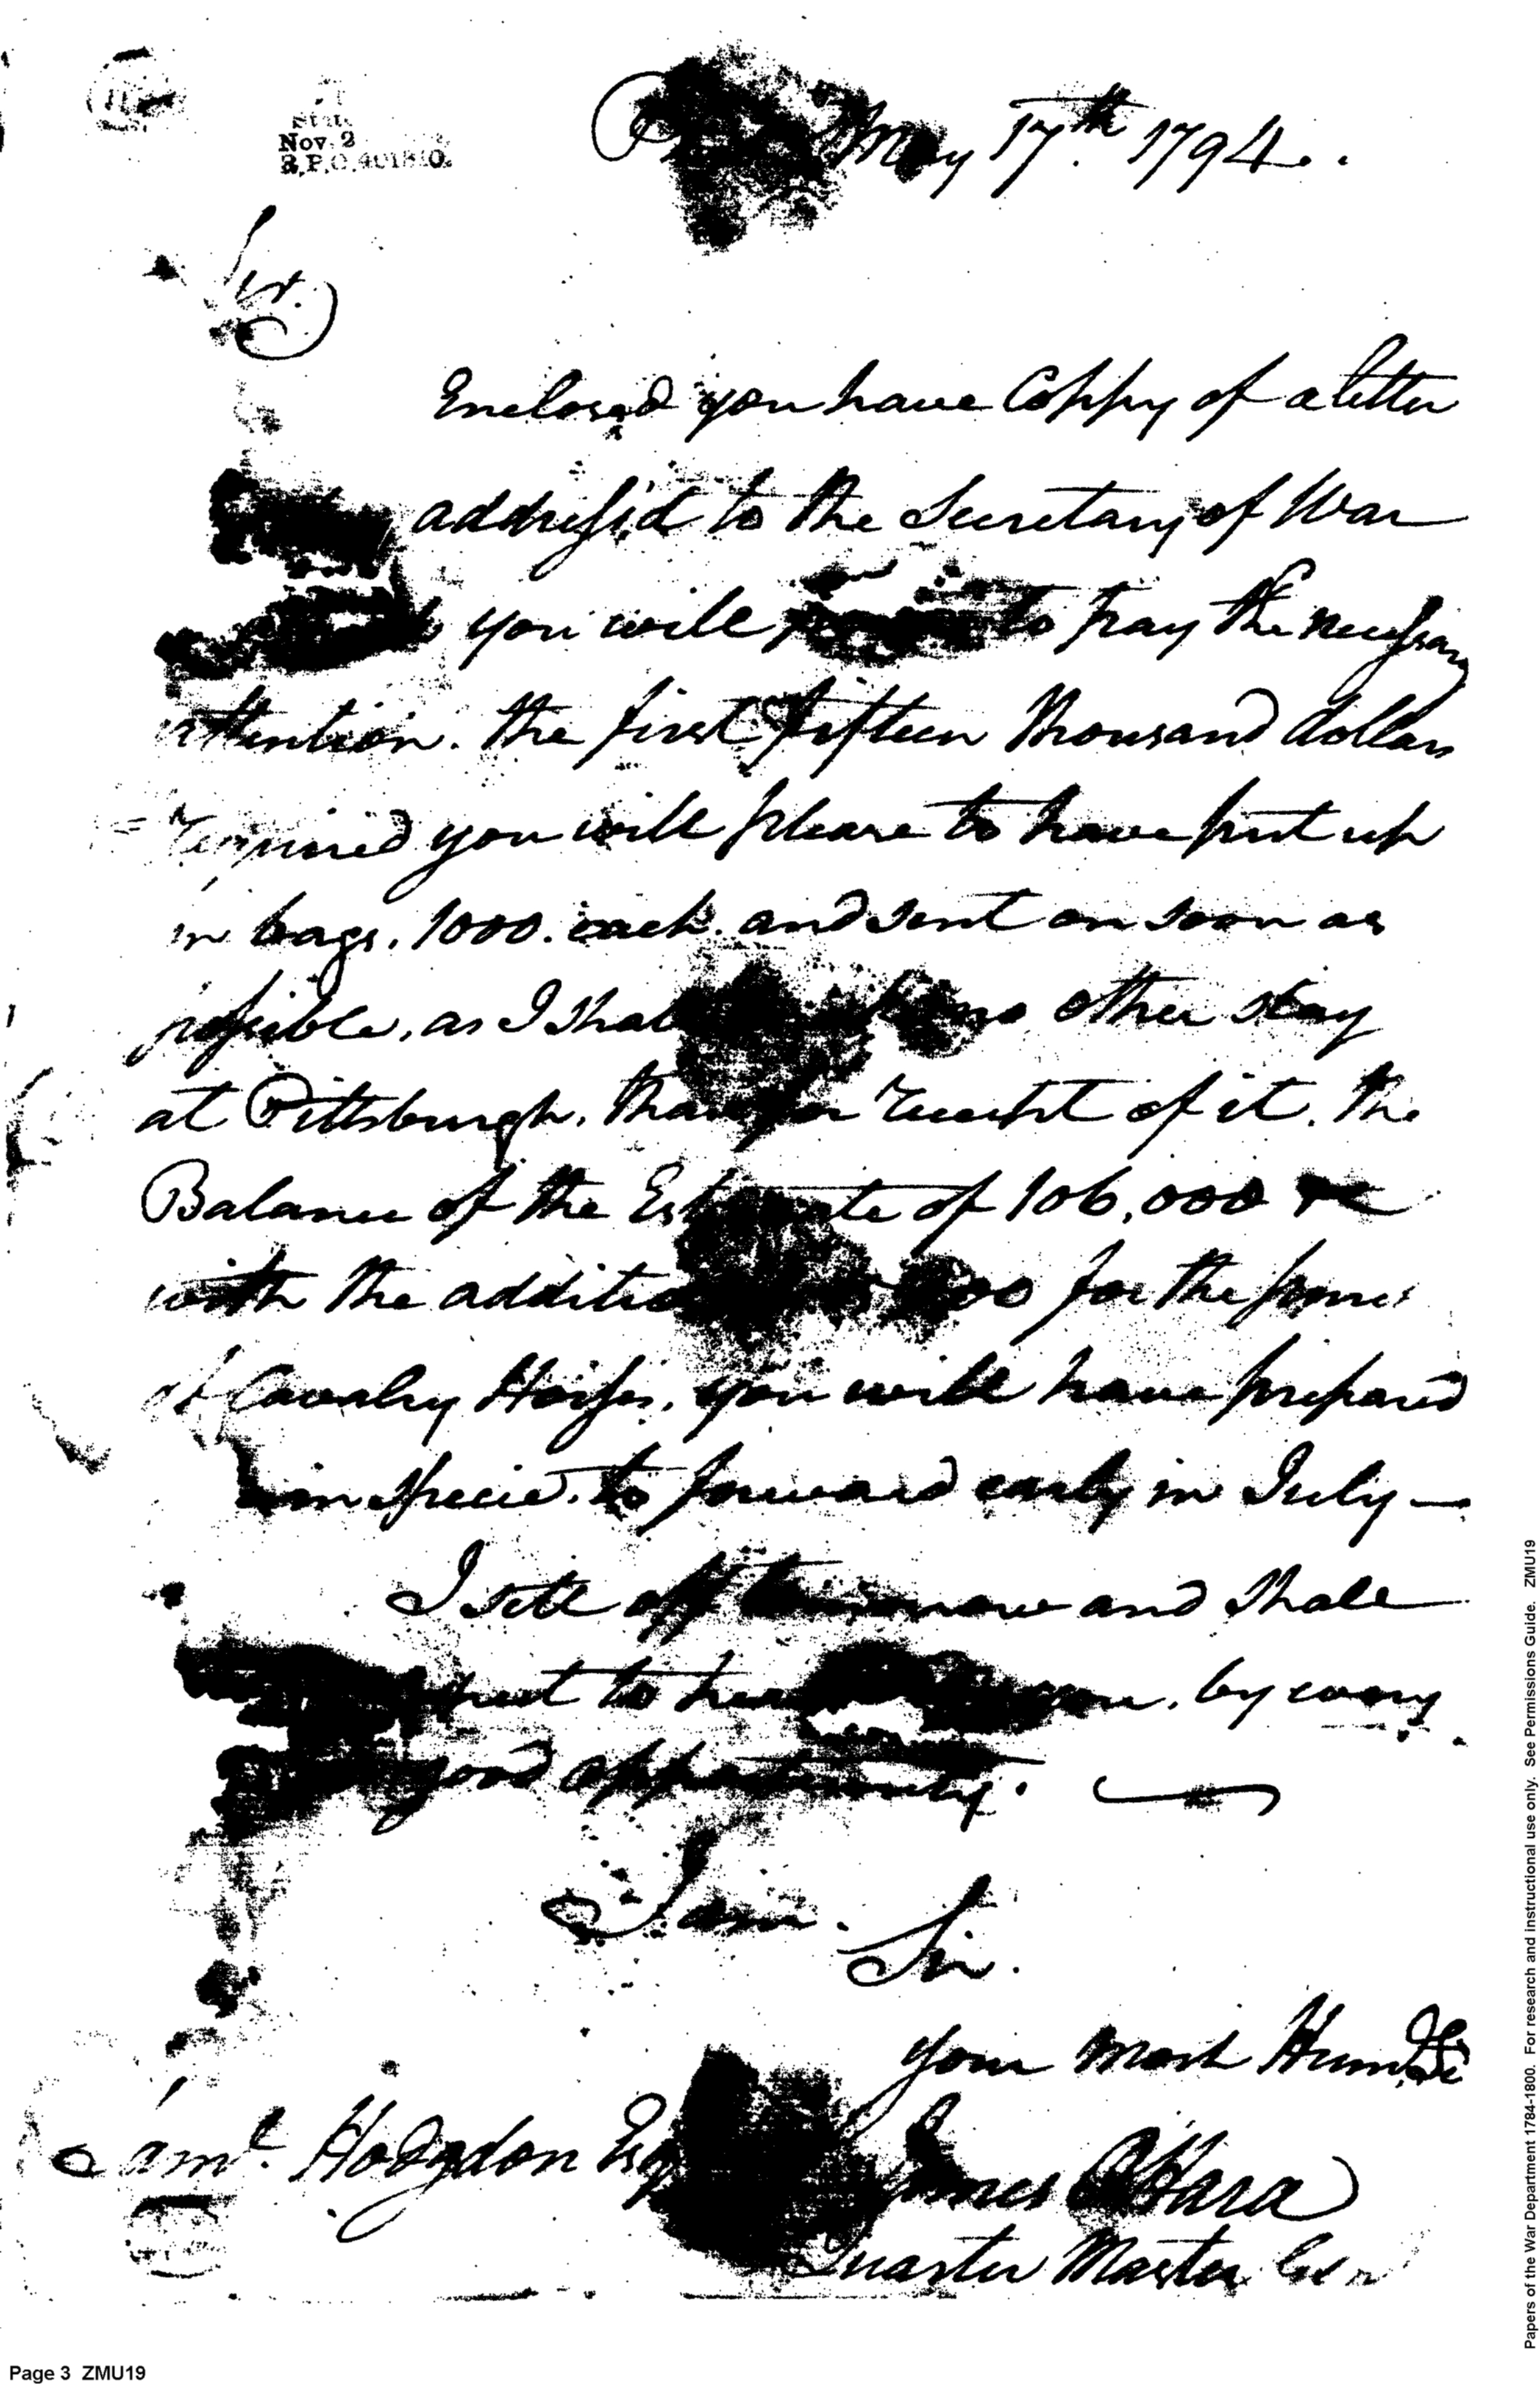 May 17th 1794.
Nov. 2
Sir.
Enclosed you have Coppy of a letter
address'd to the Secretary of War
you will to pay the necessary
attention. the first fifteen thousand dollars
required you will please to have put up
in bags. 1000. each. and sent on soon as
possible, as I shall no other stay
at Pittsburgh. than for receipt of it. the
Balance of the Estimate of 106,000
with the for the
of Cavalry Horses. you will have prepared
in specie. to forward early in July —
I sett off tomorrow and shall
to hear you. by every
good opportunity.
I am.
Sir.
your most Humble
Saml. Hodgdon Esq
James OHara
Quarter Master Gen
Page 3 ZMU19
Papers of the War Department 1784-1800. For research and instructional use only. See Permissions Guide. ZMU19